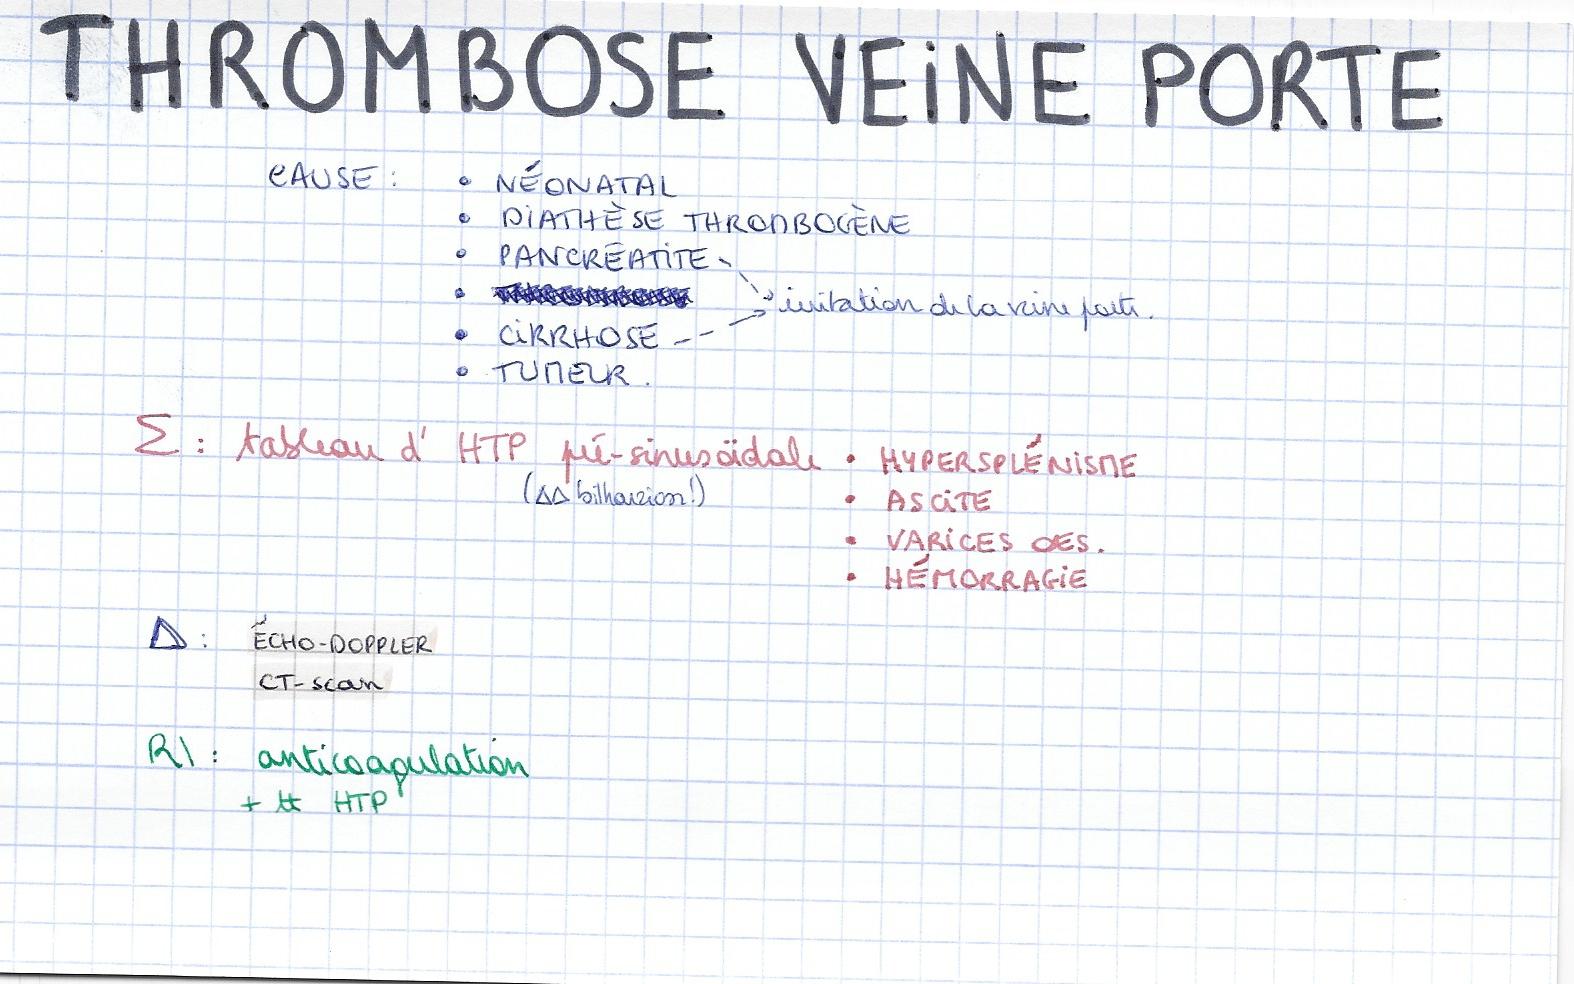 THROMBOSE VEINE PORTE
CAUSE :
• NÉONATAL
• DIATHÈSE THROMBOGÈNE
• PANCRÉATITE
irritation de la veine porte.
• CIRRHOSE
• TUMEUR.
Σ : tableau d' HTP pré-sinusoïdale
(ΔΔ bilharzion!)
• HYPERSPLÉNISME
• ASCITE
• VARICES OES.
• HÉMORRAGIE
Δ : ÉCHO-DOPPLER
CT-scan
R\ : anticoagulation
+ tt HTP